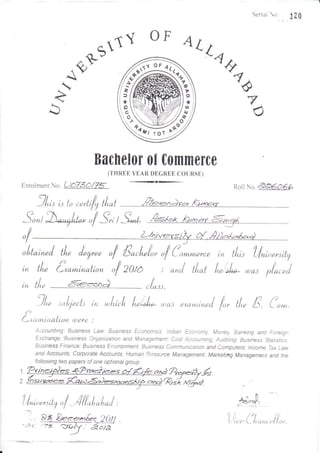 Serial No. 120
UNIVERSITY OF ALLAHABAD
UNIVERSITY OF ALLAHABAD
QUOT RAMI TOT ARBORES
Bachelor of Commerce
(THREE YEAR DEGREE COURSE)
Enrolment No. U0730175
Roll No.
This is to certify that Kumar
Son/Daughter of Sri/Smt. Ashok Kumar Singh
of University Of Allahabad
obtained the degree of Bachelor of Commerce in this University
in the Examination of 2010 : and that he/she was placed
in the Second class.
The subjects in which he/she was examined for the B. Com.
Examination were :
Accounting Business Law: Business Economics Indian Economy: Money, Banking and Foreign
Exchange: Business Organization and Management: Cost Accounting: Auditing: Business Statistics:
Business Finance: Business Environment: Business Communication and Computers: Income Tax Law
and Accounts: Corporate Accounts: Human Resource Management: Marketing Management and the
following two papers of one optional group:
1. Principles & Practices of Life and Property Ins.
2. Insurance Law, Salesmanship and Risk Mgmt
University of Allahabad :
December, 2011
July 2012
Vice-Chancellor.